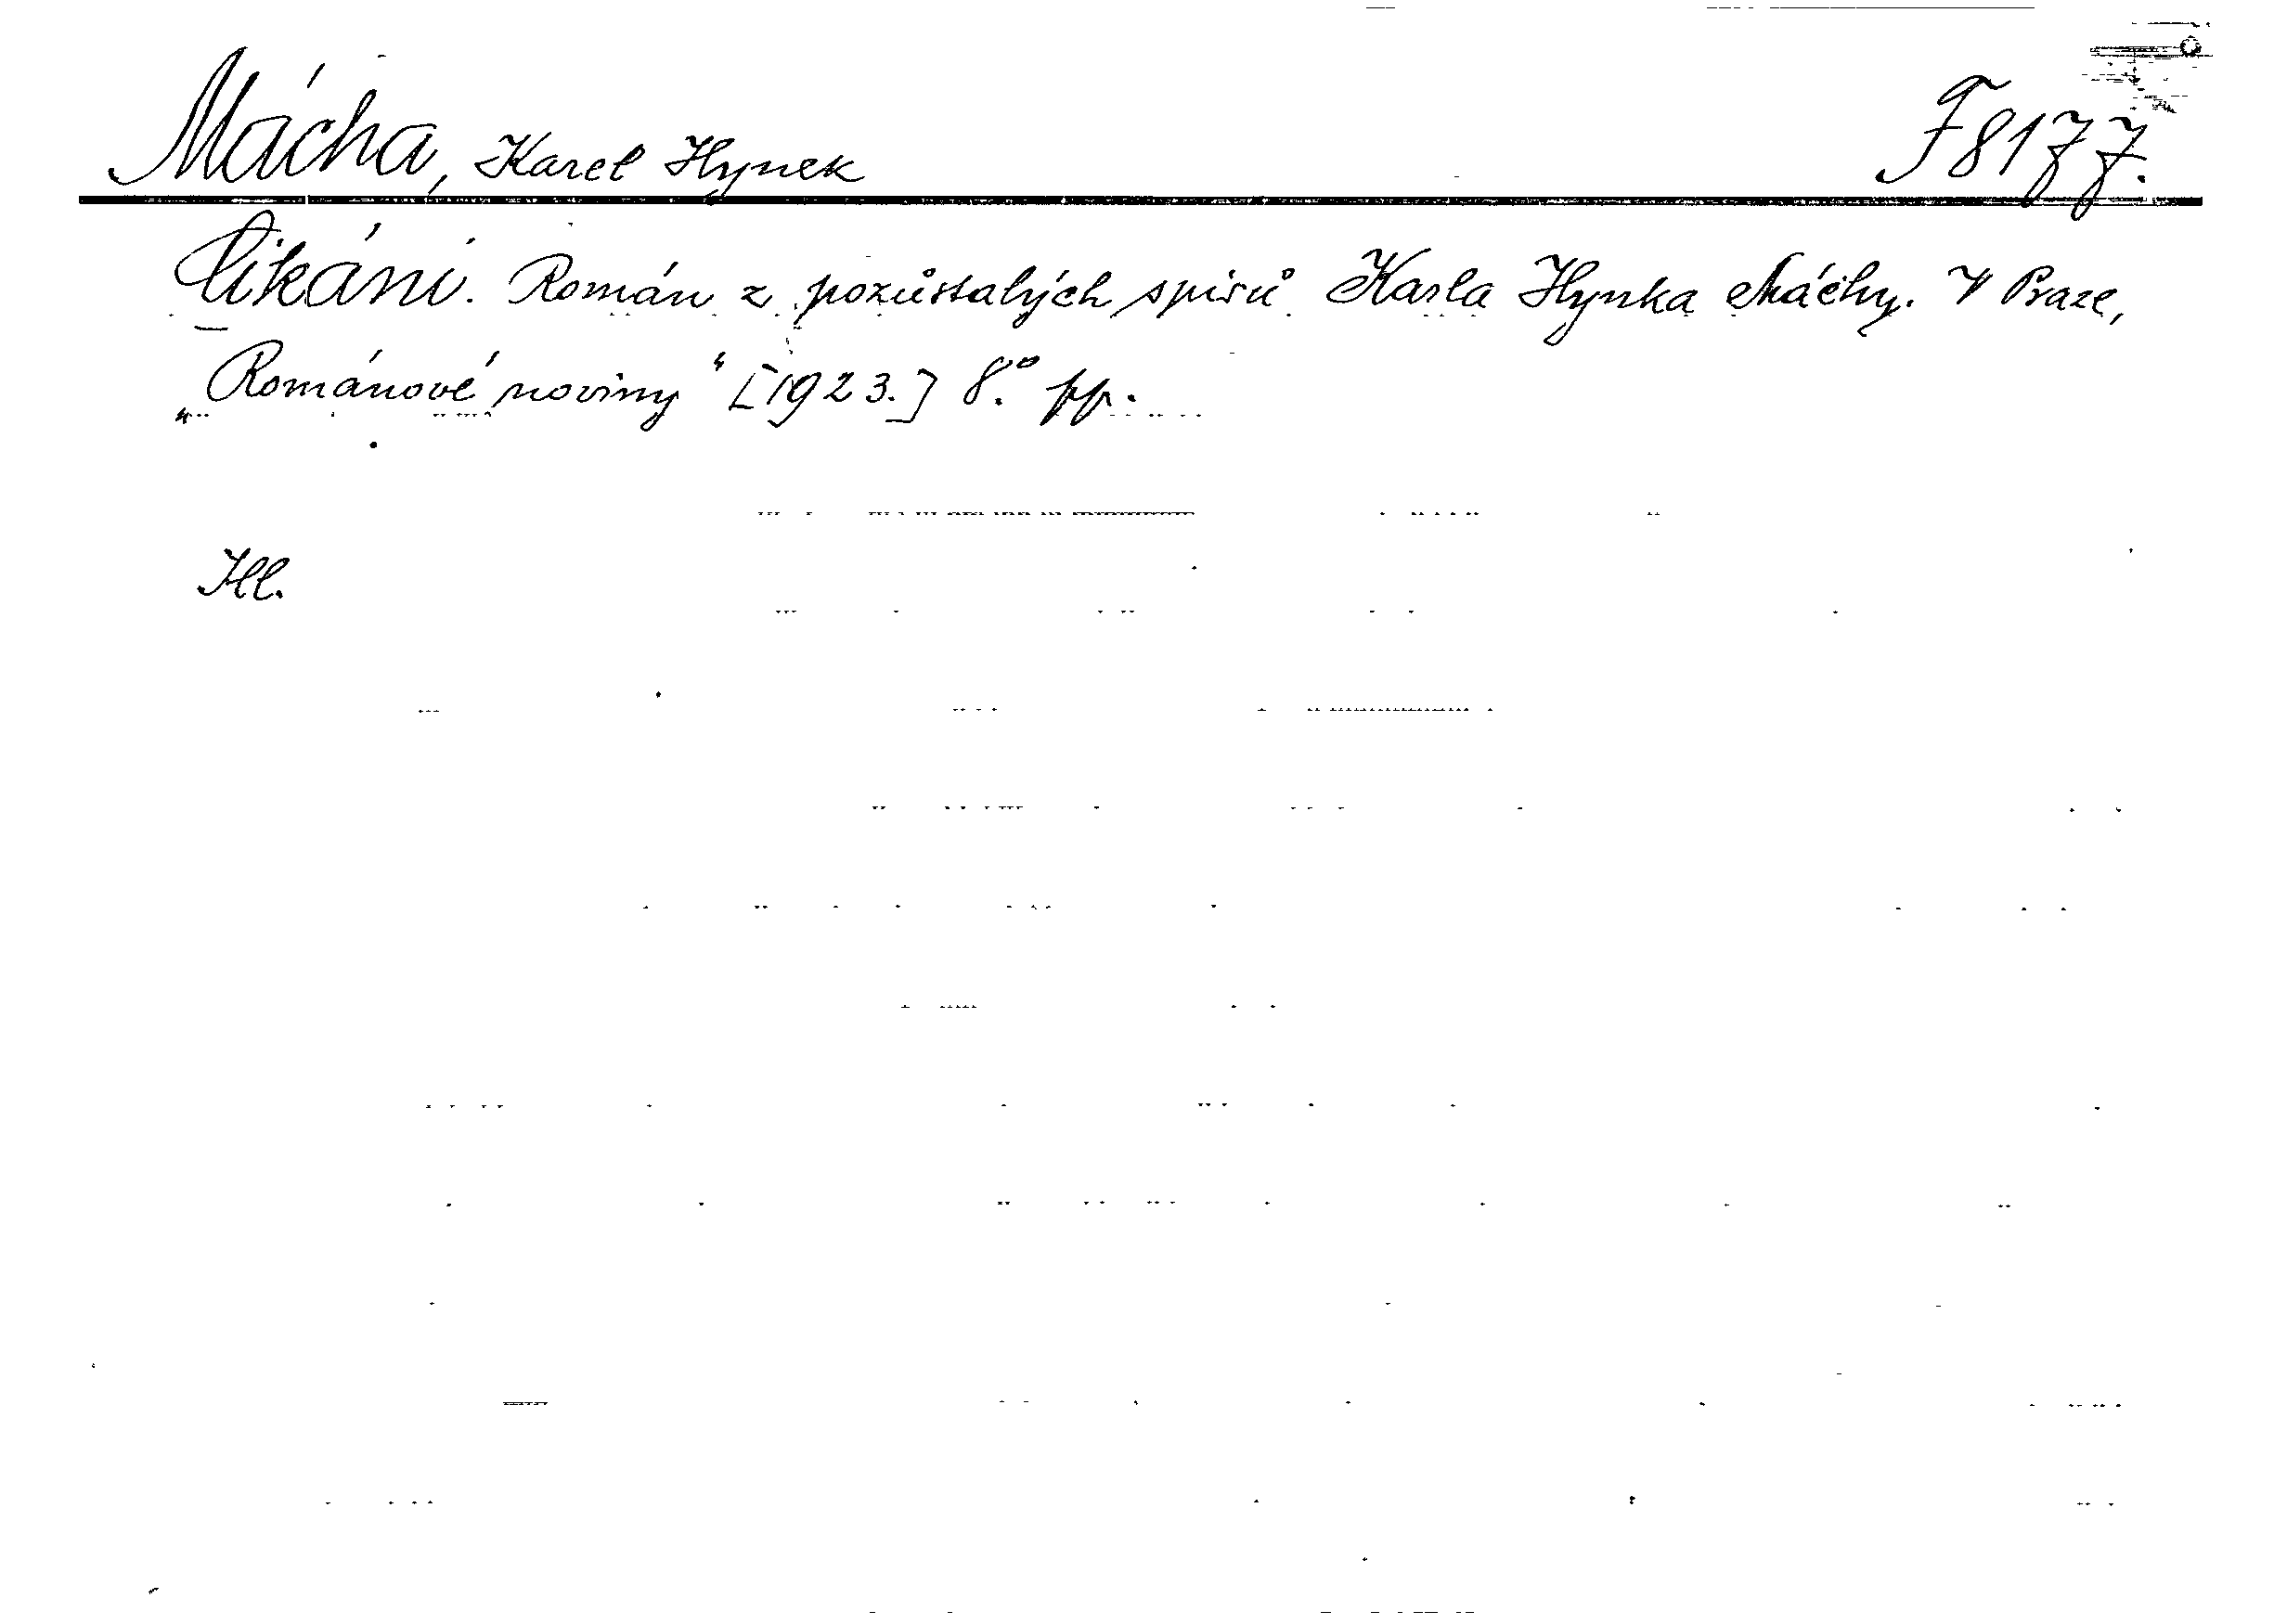 Mácha, Karel Hynek F 8177.
Cikáni. Román z pozůstalých spisů Karla Hynka Máchy. V Praze,
„Románové noviny“ [1923.] 8.° pp.
Ill.